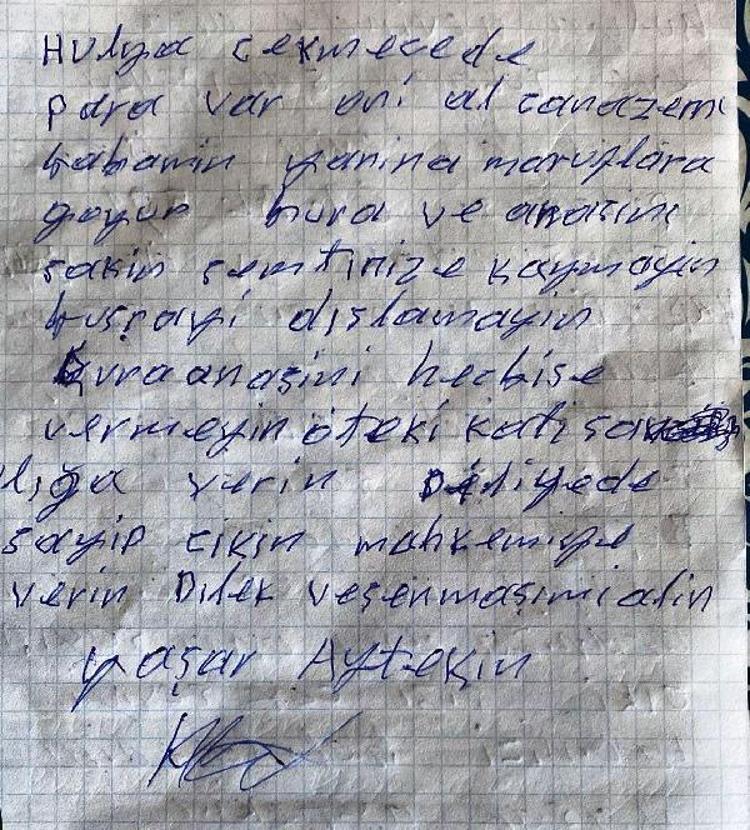 Hulya cekmecede
para var oni al canazemi
babamin yanina maruflara
goyun bura ve anasini
sakin semtinize koymayin
buşrayi dışlamayin
kura anasini hecbişe
vermeyin öteki kati sav
lığa verin Dedliyede
sayip cikin mahkemiye
verin Dilek veşen maşimi alin
yaşar Aytekin